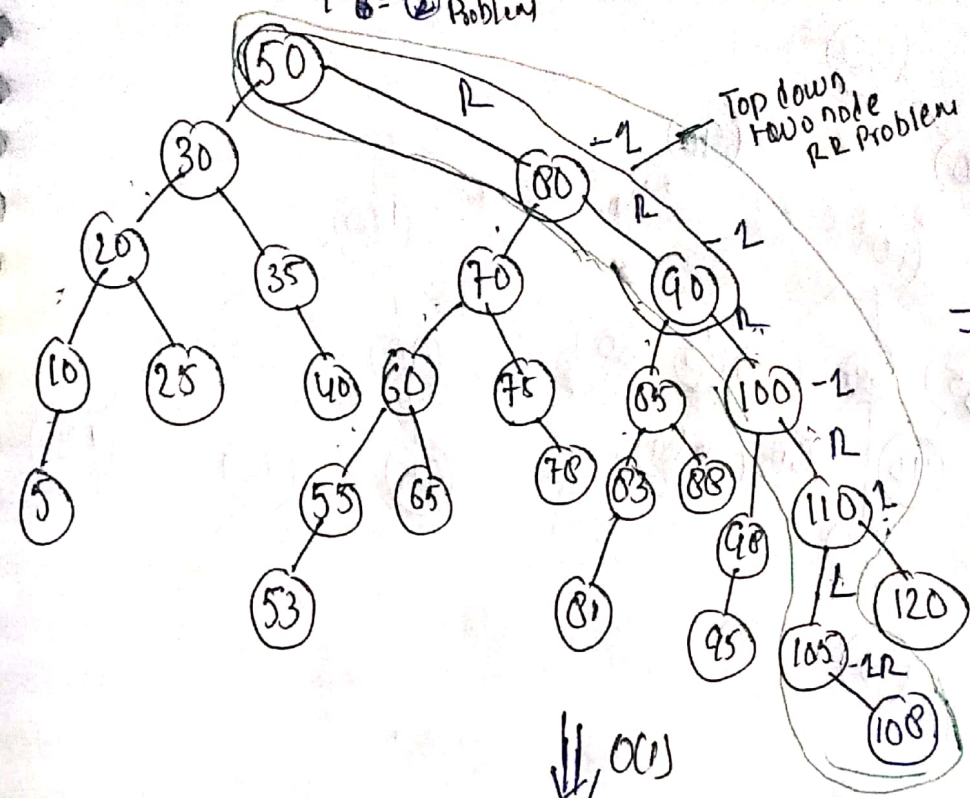 Problem
50
R
Top down
two node
RR Problem
-2
30
80
R
-2
20
35
70
90
R
10
25
40
60
75
85
100
-2
R
5
55
65
78
83
88
110
98
L
120
53
81
95
105
-1R
108
O(1)